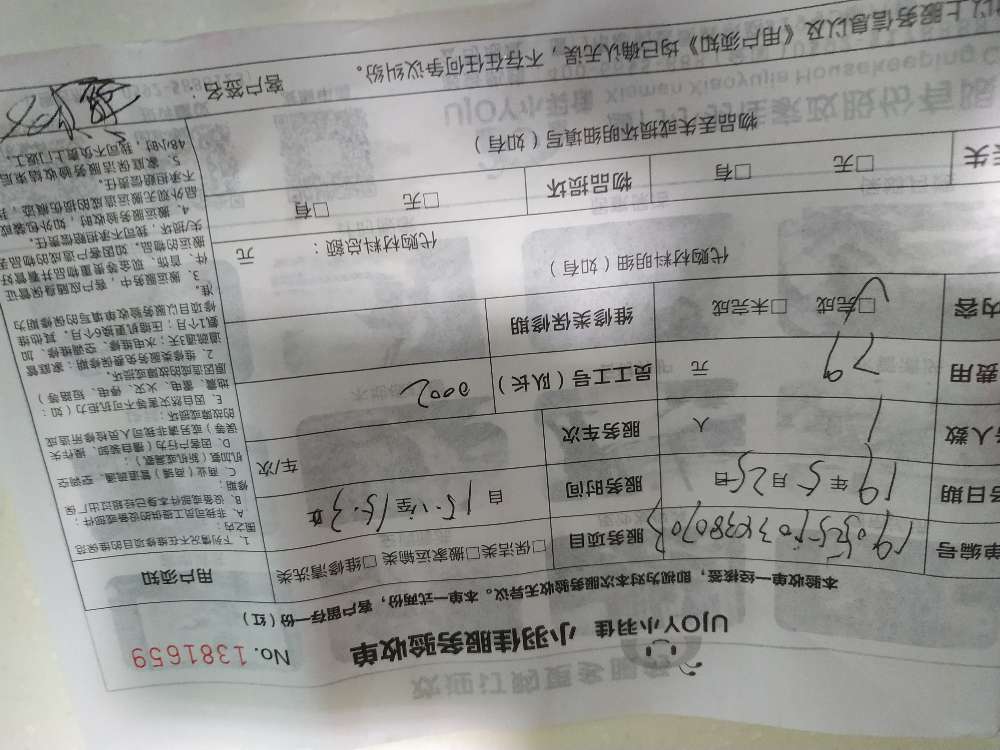 UJOY小羽佳 小羽佳服务验收单
No. 1381659
本验收单一经接签，即视为对本次服务验收无异议。本单一式两份，客户留存一份（红）
单编号
服务项目 □保洁类 □搬家运输类 □维修清洗类
用户须知
务日期 19年5月25日 服务时间 自
务人数 1 人 服务车次 车/次
费用 79 元 员工工号（队长） 0002
内容 □完成 □未完成 维修类保修期
代购材料明细（如有） 代购材料总额： 元
丢失 □无 □有 物品损坏 □无 □有
物品丢失或损坏明细填写（如有）
以上服务信息以及《用户须知》均已确认无误，不存在任何争议纠纷。 客户签名：
1. 下列情况不在维修项目的维保范
围之内：
A. 非我司员工提供的设备或部件；
B. 设备或部件本身已经超过出厂保
修期；
C. 商业（商铺）管道疏通、空调空
机加氨（新机或漏氨）；
D. 因客户行为（擅自装卸、操作失
误等）或另请非我司人员检修所造成
的故障或损坏；
E. 因自然灾害等不可抗拒力（如：
地震、雷电、火灾、停电、短路等）
原因造成的故障或损坏。
2. 维修类服务免费保修期：家庭管
道疏通3天；水电维修、空调维修、加
氨1个月；压缩机更换6个月。其他维
修项目以服务验收单填写的保修期为
准。
3. 搬运服务中，客户应随身保管证
件、首饰、现金等贵重物品并看管好
搬运的物品。如因客户造成的物品丢
失/损坏，我司不承担赔偿责任。
4. 搬运服务验收时，如外包装或
品外观无搬运造成的损伤痕迹，我
不承担赔偿责任。
5. 家庭保洁服务验收结束后
48小时，我司不负责上门返工。